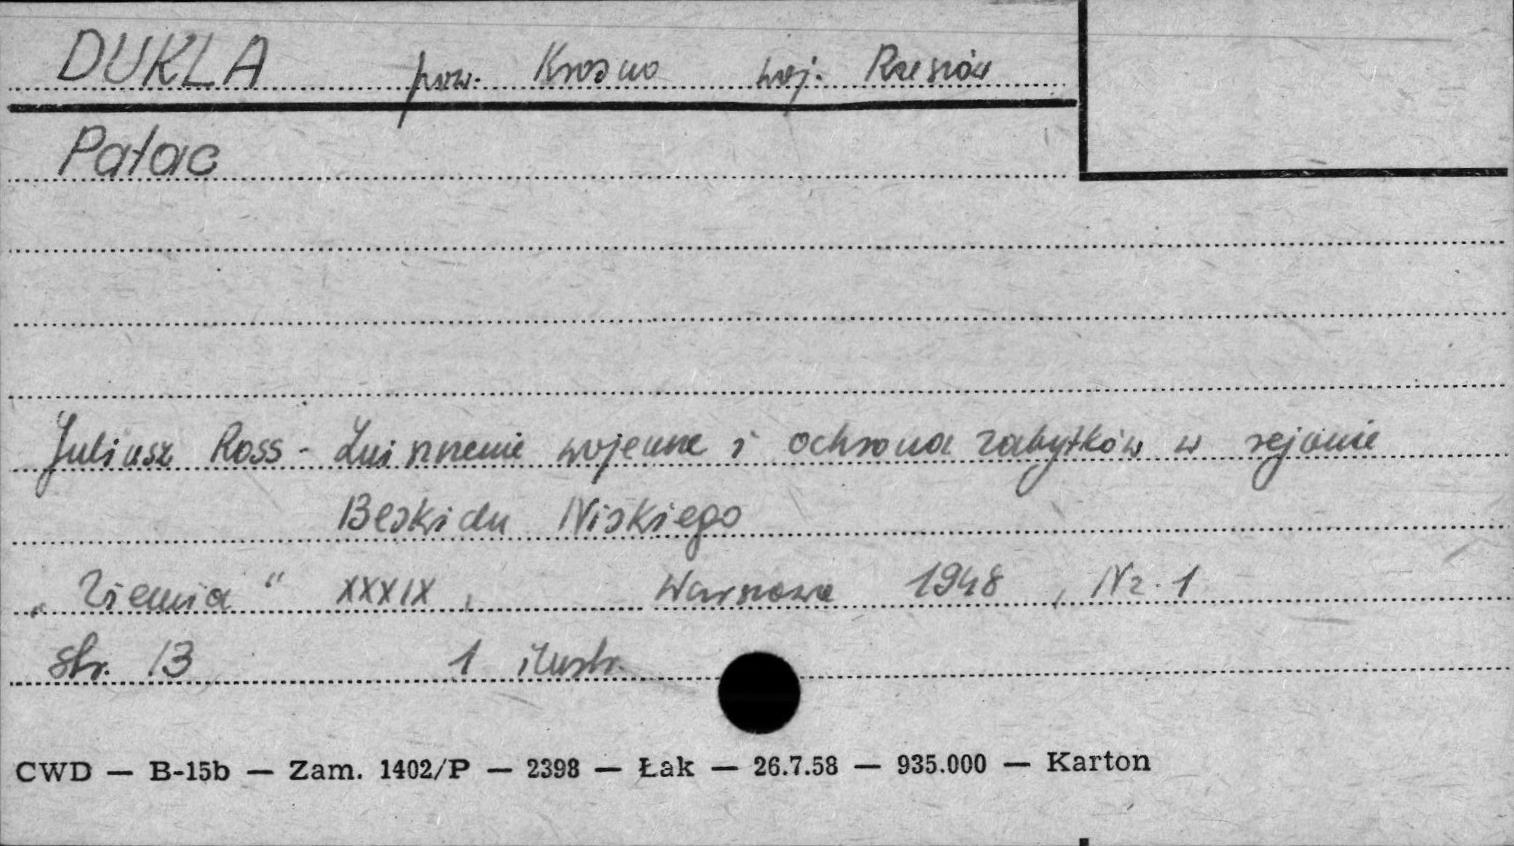 DUKLA pow. Krosno woj. Rzeszów
Pałac
Juliusz Ross - Zniszczenie wojenne i ochrona zabytków w rejonie
Beskidu Niskiego
„Ziemia“ XXXIX, Warszawa 1948, Nr. 1
str. 13 1 ilustr.
CWD — B-15b — Zam. 1402/P — 2398 — Łak — 26.7.58 — 935.000 — Karton